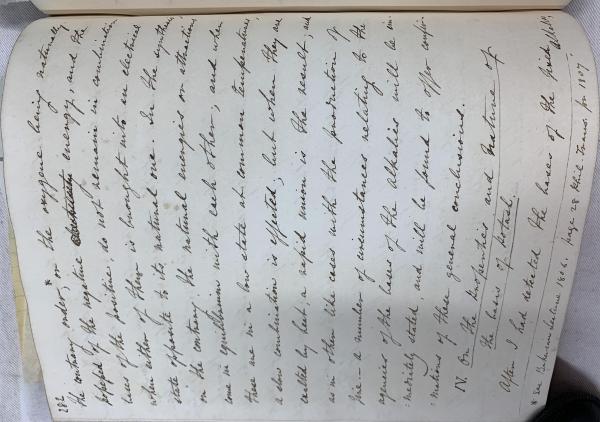 282
*
the contrary order, or the oxygene being naturally
possessed of the negative energy, and the
bases of the positive, do not remain in combination
when either of them is brought into an electrical
state opposite to its natural one. In the synthesis
on the contrary the natural energies or attractions
come in equilibrium with each other; and when
these are in a low state at common temperatures,
a slow combination is effected; but when they are
exalted by heat, a rapid union is the result; and
as in other like cases with the production of
fire – a number of circumstances relating to the
agencies of the bases of the alkalies will be im-
:mediately stated, and will be found to offer confir-
:mations of these general conclusions.
IV. On the properties and nature of
the basis of potash.
After I had detected the bases of the fixed
* See Bakerian Lecture 1806. page 28 Phil Trans. for 1807